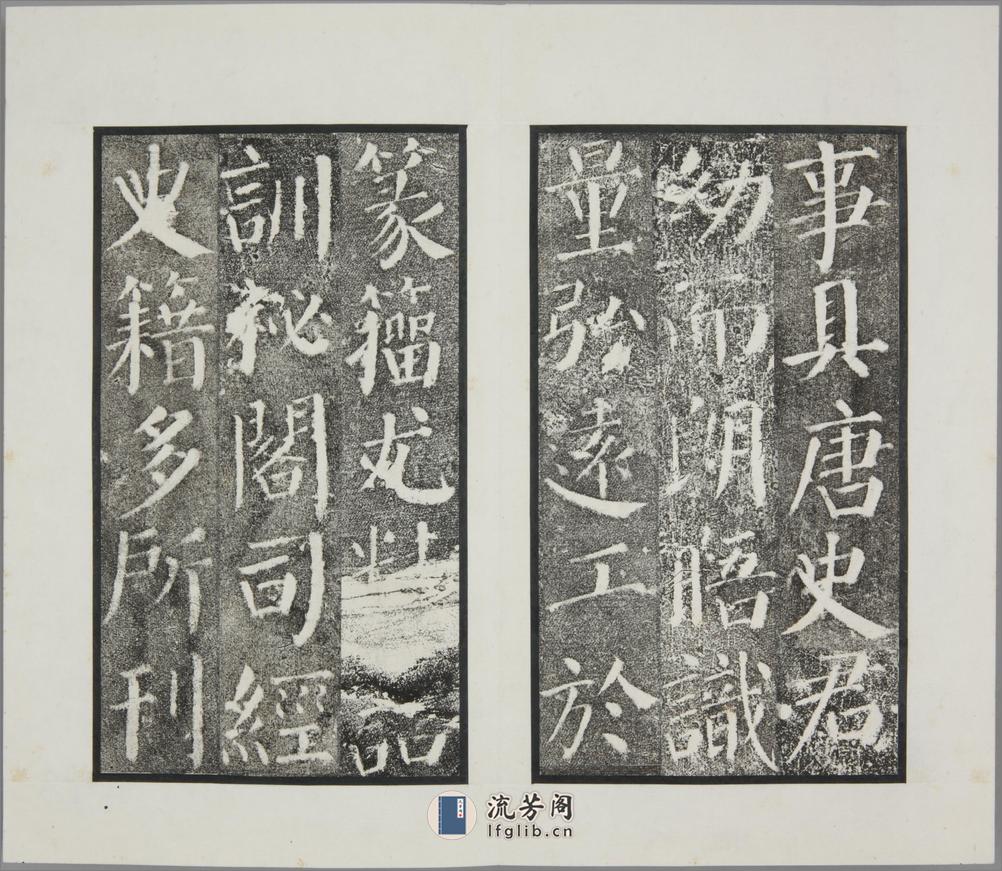 事具唐史君
幼而朗晤識
量弘遠工於
篆籀尤
訓祕閣司經
史籍多所刊
流芳阁
lfglib.cn